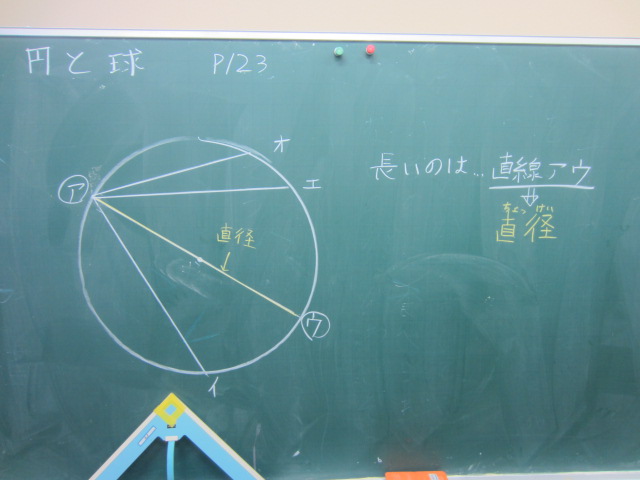 円と球 P123
オ
エ
ア
長いのは…直線アウ
⇓
ちょっけい
直径
直径
↓
ウ
イ